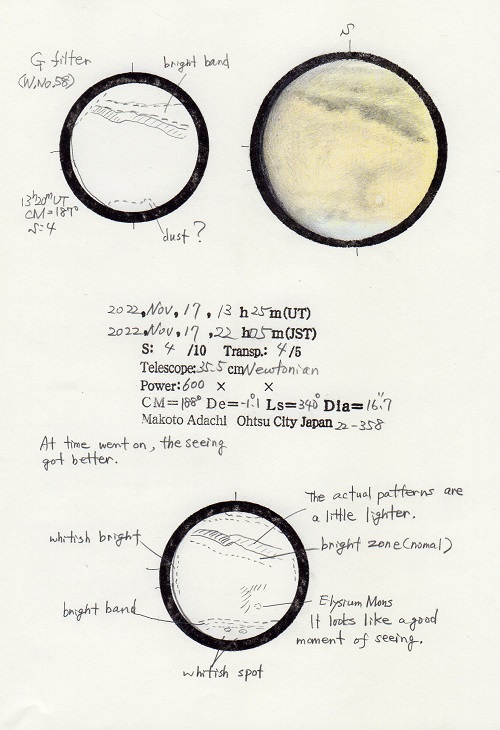 S
G filter
(W.No.58)
bright band
13h20m UT
CM=187°
S=4
dust?
2022, Nov, 17, 13 h 25 m (UT)
2022, Nov, 17, 22 h 05 m (JST)
S: 4 /10 Transp.: 4 /5
Telescope: 35.5 cm Newtonian
Power: 600 × ×
CM=188° De=-1.1 Ls=340° Dia=16."7
Makoto Adachi Ohtsu City Japan 22-358
At time went on, the seeing
got better.
The actual patterns are
a little lighter.
whitish bright
bright zone (nomal)
bright band
Elysium Mons
It looks like a good
moment of seeing.
whitish spot